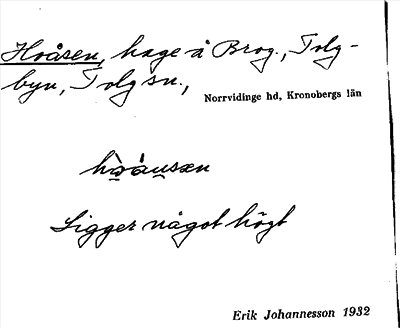 Hoåsen, hage å Brog., Tolg-
byn, Tolg sn.,
Norrvidinge hd, Kronobergs län
Ligger något högt
Erik Johannesson 1932